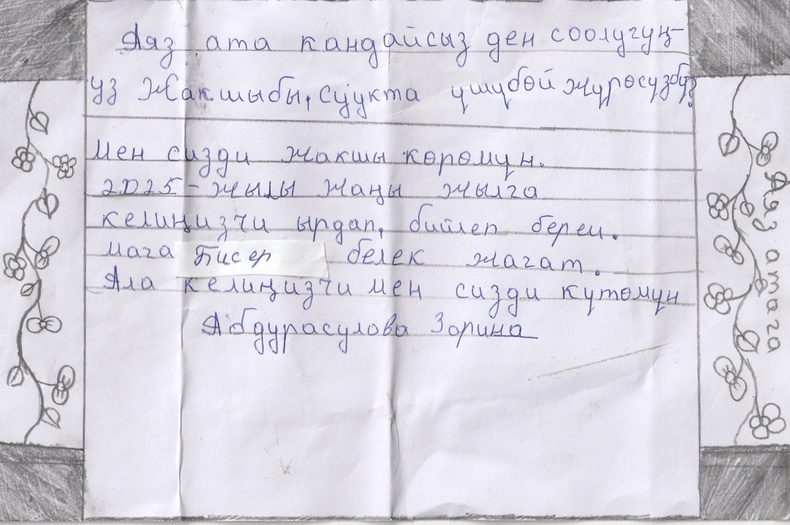 Аяз ата кандайсыз ден соолугуң-
уз жакшыбы, суукта үшүбөй жүрөсүзбү?
Мен сизди жакшы көрөмүн.
2025-жылы жаңы жылга
келиңизчи ырдап, бийлеп берем.
мага бисер белек жагат.
Ала келиңизчи мен сизди күтөмүн
Абдурасулова Зарина
Аяз атага